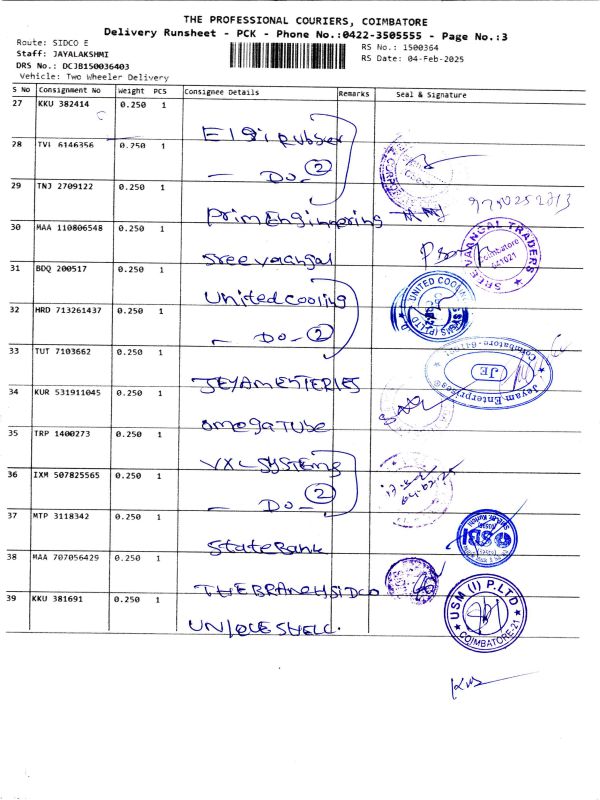 THE PROFESSIONAL COURIERS, COIMBATORE
Delivery Runsheet - PCK - Phone No.:0422-3505555 - Page No.:3
Route: SIDCO E
RS No.: 1500364
Staff: JAYALAKSHMI
RS Date: 04-Feb-2025
DRS No.: DCJB150036403
Vehicle: Two Wheeler Delivery
S No Consignment No Weight PCS Consignee Details Remarks Seal & Signature
27 KKU 382414 0.250 1
Elgi rubber
28 TVL 6146356 0.250 1
- DO - 2
29 TNJ 2709122 0.250 1
Prim Engineering
30 MAA 110806548 0.250 1
Sree vaangal
SREE VAANGAL TRADERS
Coimbatore
641021
31 BDQ 200517 0.250 1
United cooling
32 HRD 713261437 0.250 1
- DO - 2
33 TUT 7103662 0.250 1
JEYAM ENTERIES
Jeyam Enterprises
JE
34 KUR 531911045 0.250 1
omega Tube
35 TRP 1400273 0.250 1
VXL SYSTEMS
36 IXM 507825565 0.250 1
- DO - 2
37 MTP 3118342 0.250 1
State Bank
SBI
38 MAA 707056429 0.250 1
THE BRANCH SIDCO
39 KKU 381691 0.250 1
UNIQUE SHELL.
USM (I) P.LTD
COIMBATORE-21